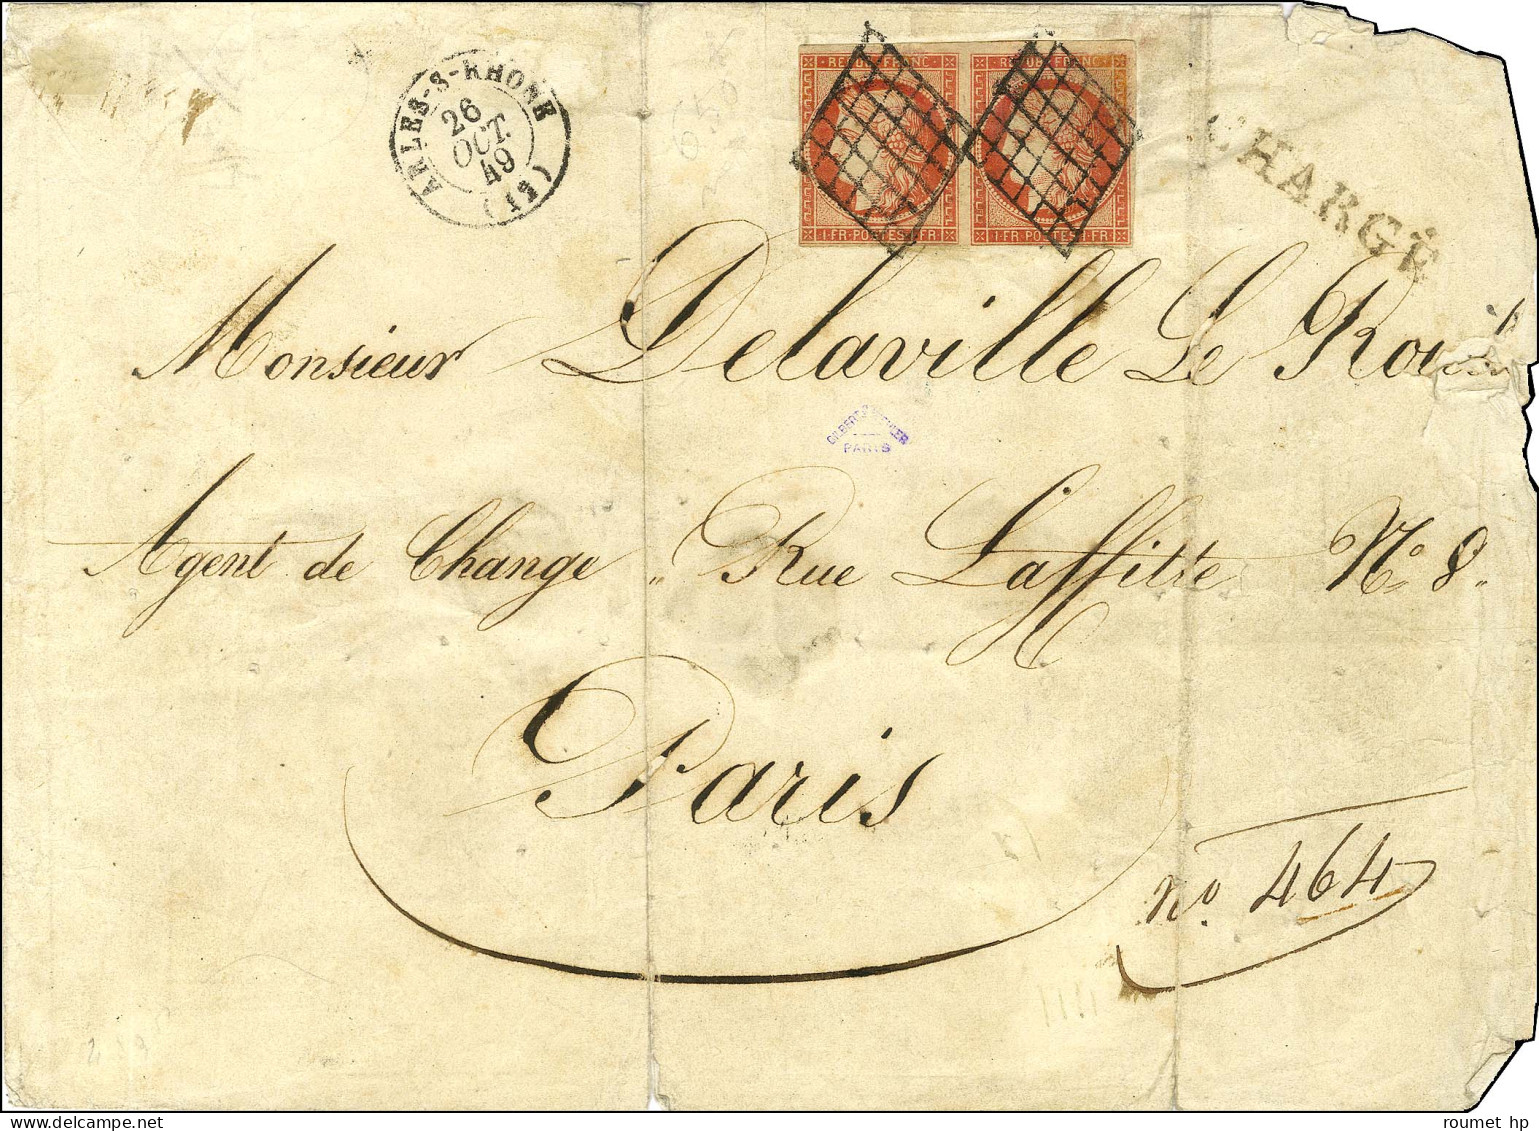 ARLES-S-RHONE
26
OCT.
49
(12)
REPUB. FRANC. REPUB. FRANC.
1·FR·POSTES·1·FR· 1·FR·POSTES·1·FR·
CHARGÉ
Monsieur Delaville Le Roulx
GILBERT & KOHLER
PARIS
Agent de Change „ Rue Laffitte N° 8„
Paris
n° 464
roumet hp